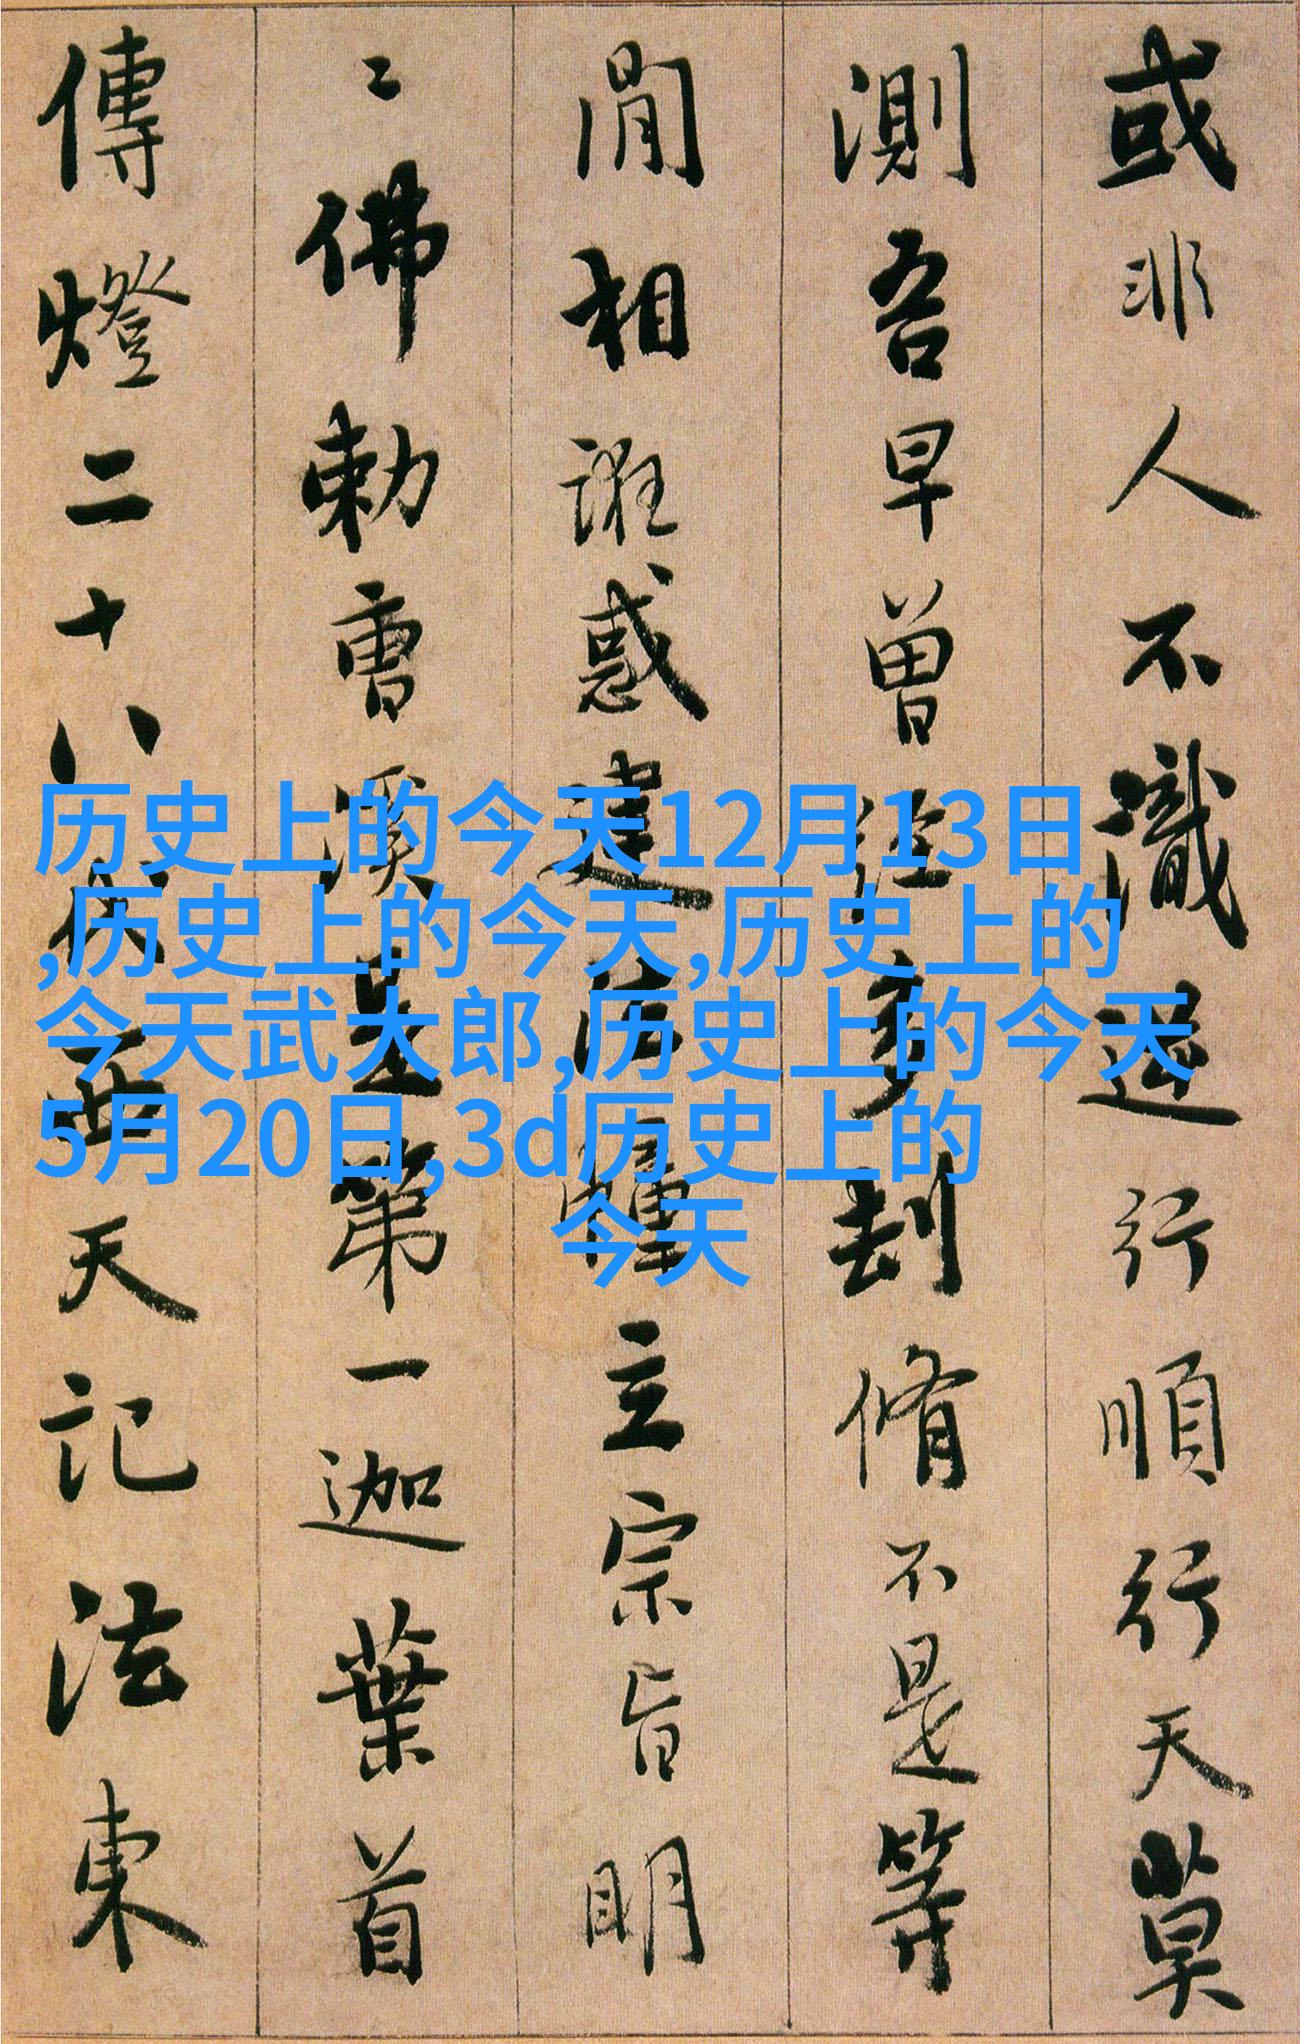 或非人不識逆行順行天莫
測吾早曾經多刼脩不是等
閒相誑惑建法幢立宗旨明
〻佛勅曹溪是第一迦葉首
傳燈二十八代西天記法東
历史上的今天12月13日
,历史上的今天,历史上的
今天武大郎,历史上的今天
5月20日,3d历史上的
今天